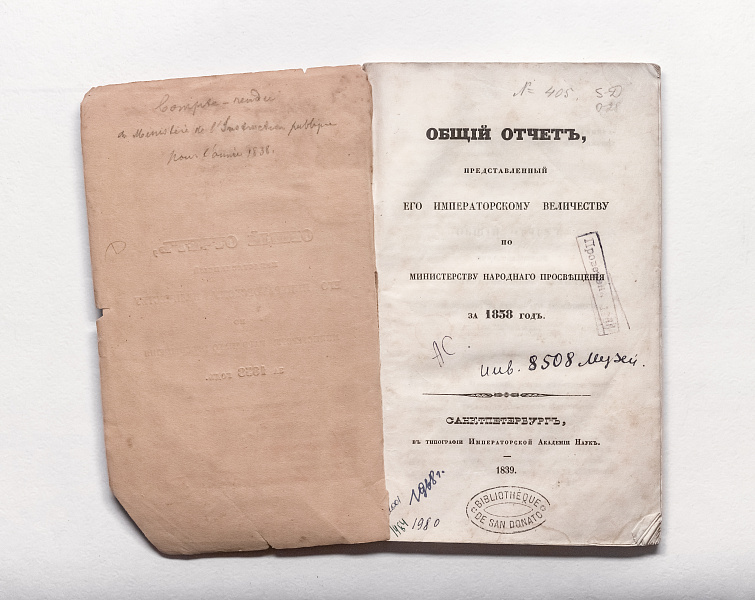 Compte-rendu
du Ministère de l'Instruction publique
pour l'année 1838.
№ 405.
S-D
ОБЩІЙ ОТЧЕТЪ,
ПРЕДСТАВЛЕННЫЙ
ЕГО ИМПЕРАТОРСКОМУ ВЕЛИЧЕСТВУ
ПО
МИНИСТЕРСТВУ НАРОДНАГО ПРОСВѢЩЕНІЯ
ЗА 1838 ГОДЪ.
АС
инв. 8508 Музей.
САНКТПЕТЕРБУРГЪ,
ВЪ ТИПОГРАФІИ ИМПЕРАТОРСКОЙ АКАДЕМІИ НАУКЪ.
1839.
1968 г.
1984 1980
BIBLIOTHÈQUE
DE SAN DONATO